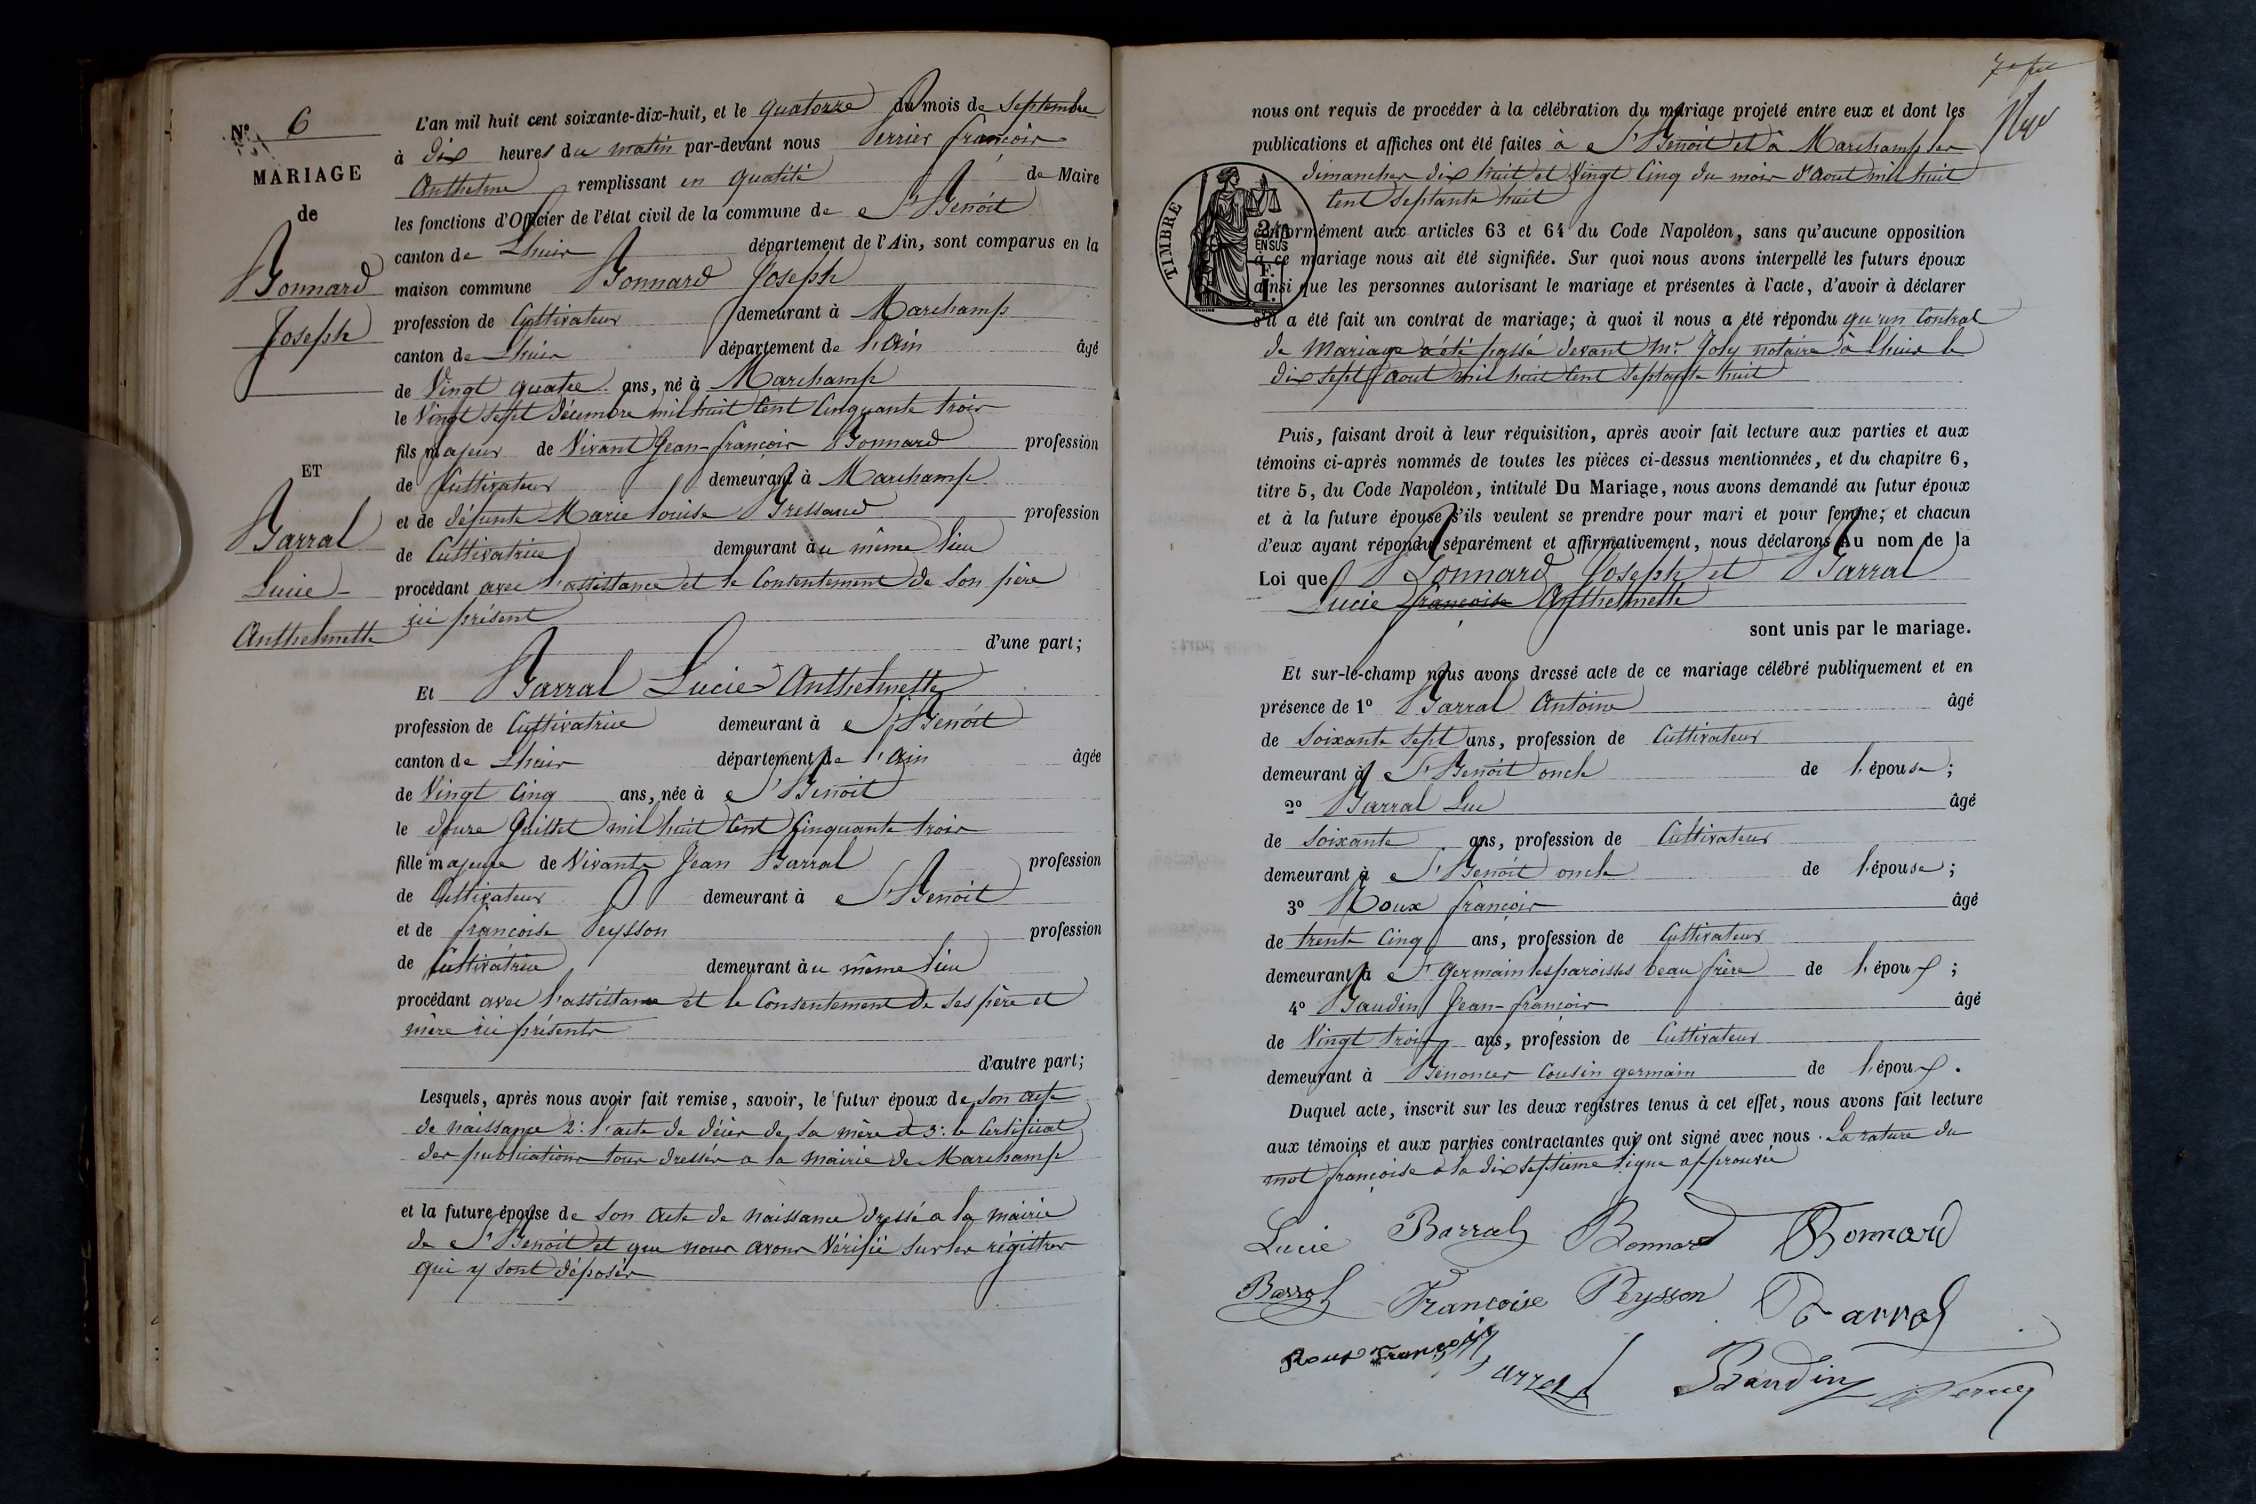 N° 6
MARIAGE
de
Bonnard
Joseph
ET
Barral
Lucie
Anthelmette
L'an mil huit cent soixante-dix-huit, et le quatorze du mois de Septembre
à dix heures du matin par-devant nous Perrier françois
Anthelme remplissant en qualité de Maire
les fonctions d'Officier de l'état civil de la commune de St Benoit
canton de Lhuis département de l'Ain, sont comparus en la
maison commune Bonnard Joseph
profession de Cultivateur demeurant à Marchamp
canton de Lhuis département de l'Ain âgé
de Vingt quatre ans, né à Marchamp
le Vingt sept décembre mil huit Cent Cinquante trois
fils majeur de Vivant Jean-françois Bonnard profession
de Cultivateur demeurant à Marchamp
et de défunte Marie Louise Gressard profession
de Cultivatrice demeurant au même lieu
procédant avec l'assistance et le Consentement de Son père
ici présent
d'une part;
Et Barral Lucie Anthelmette
profession de Cultivatrice demeurant à St Benoit
canton de Lhuis département de l'Ain âgée
de Vingt Cinq ans, née à St Benoit
le douze Juillet mil huit Cent Cinquante trois
fille majeure de Vivants Jean Barral profession
de Cultivateur demeurant à St Benoit
et de françoise Peysson profession
de Cultivatrice demeurant au même lieu
procédant avec l'assistance et le Consentement de ses père et
mère ici présents
d'autre part;
Lesquels, après nous avoir fait remise, savoir, le futur époux de son acte
de naissance 2°: l'acte de décès de sa mère et 3°: le Certificat
des publications tous dressés a la mairie de Marchamp
et la future épouse de son acte de naissance dressé a la mairie
de St Benoit et que nous avons Vérifié sur les régistres
qui y sont déposés
7e
nous ont requis de procéder à la célébration du mariage projeté entre eux et dont les
publications et affiches ont été faites à St Benoit et à Marchamp les
dimanches dix huit et Vingt Cinq du mois d'Aout mil huit
Cent Septante huit
TIMBRE
2/10
EN SUS
conformément aux articles 63 et 64 du Code Napoléon, sans qu'aucune opposition
à ce mariage nous ait été signifiée. Sur quoi nous avons interpellé les futurs époux
ainsi que les personnes autorisant le mariage et présentes à l'acte, d'avoir à déclarer
s'il a été fait un contrat de mariage; à quoi il nous a été répondu qu'un Contrat
de Mariage a été passé devant Mr. Joly notaire à Lhuis le
dix sept aout mil huit Cent Septante huit
Puis, faisant droit à leur réquisition, après avoir fait lecture aux parties et aux
témoins ci-après nommés de toutes les pièces ci-dessus mentionnées, et du chapitre 6,
titre 5, du Code Napoléon, intitulé Du Mariage, nous avons demandé au futur époux
et à la future épouse s'ils veulent se prendre pour mari et pour femme; et chacun
d'eux ayant répondu séparément et affirmativement, nous déclarons au nom de la
Loi que Bonnard Joseph et Barral
Lucie françoise Anthelmette
sont unis par le mariage.
Et sur-le-champ nous avons dressé acte de ce mariage célébré publiquement et en
présence de 1° Barral Antoine âgé
de Soixante Sept ans, profession de Cultivateur
demeurant à St Benoit oncle de l'épouse;
2° Barral Luc âgé
de Soixante ans, profession de Cultivateur
demeurant à St Benoit oncle de l'épouse;
3° Roux françois âgé
de trente Cinq ans, profession de Cultivateur
demeurant à St Germain les paroisses beau frère de l'époux;
4° Baudin Jean-françois âgé
de Vingt trois ans, profession de Cultivateur
demeurant à Bénonces Cousin germain de l'époux.
Duquel acte, inscrit sur les deux registres tenus à cet effet, nous avons fait lecture
aux témoins et aux parties contractantes qui ont signé avec nous. La rature du
mot françoise a la dix septième ligne approuvée
Lucie Barral Bonnard Bonnard
Barral Francoise Peysson Barral
Roux François Barral Baudin